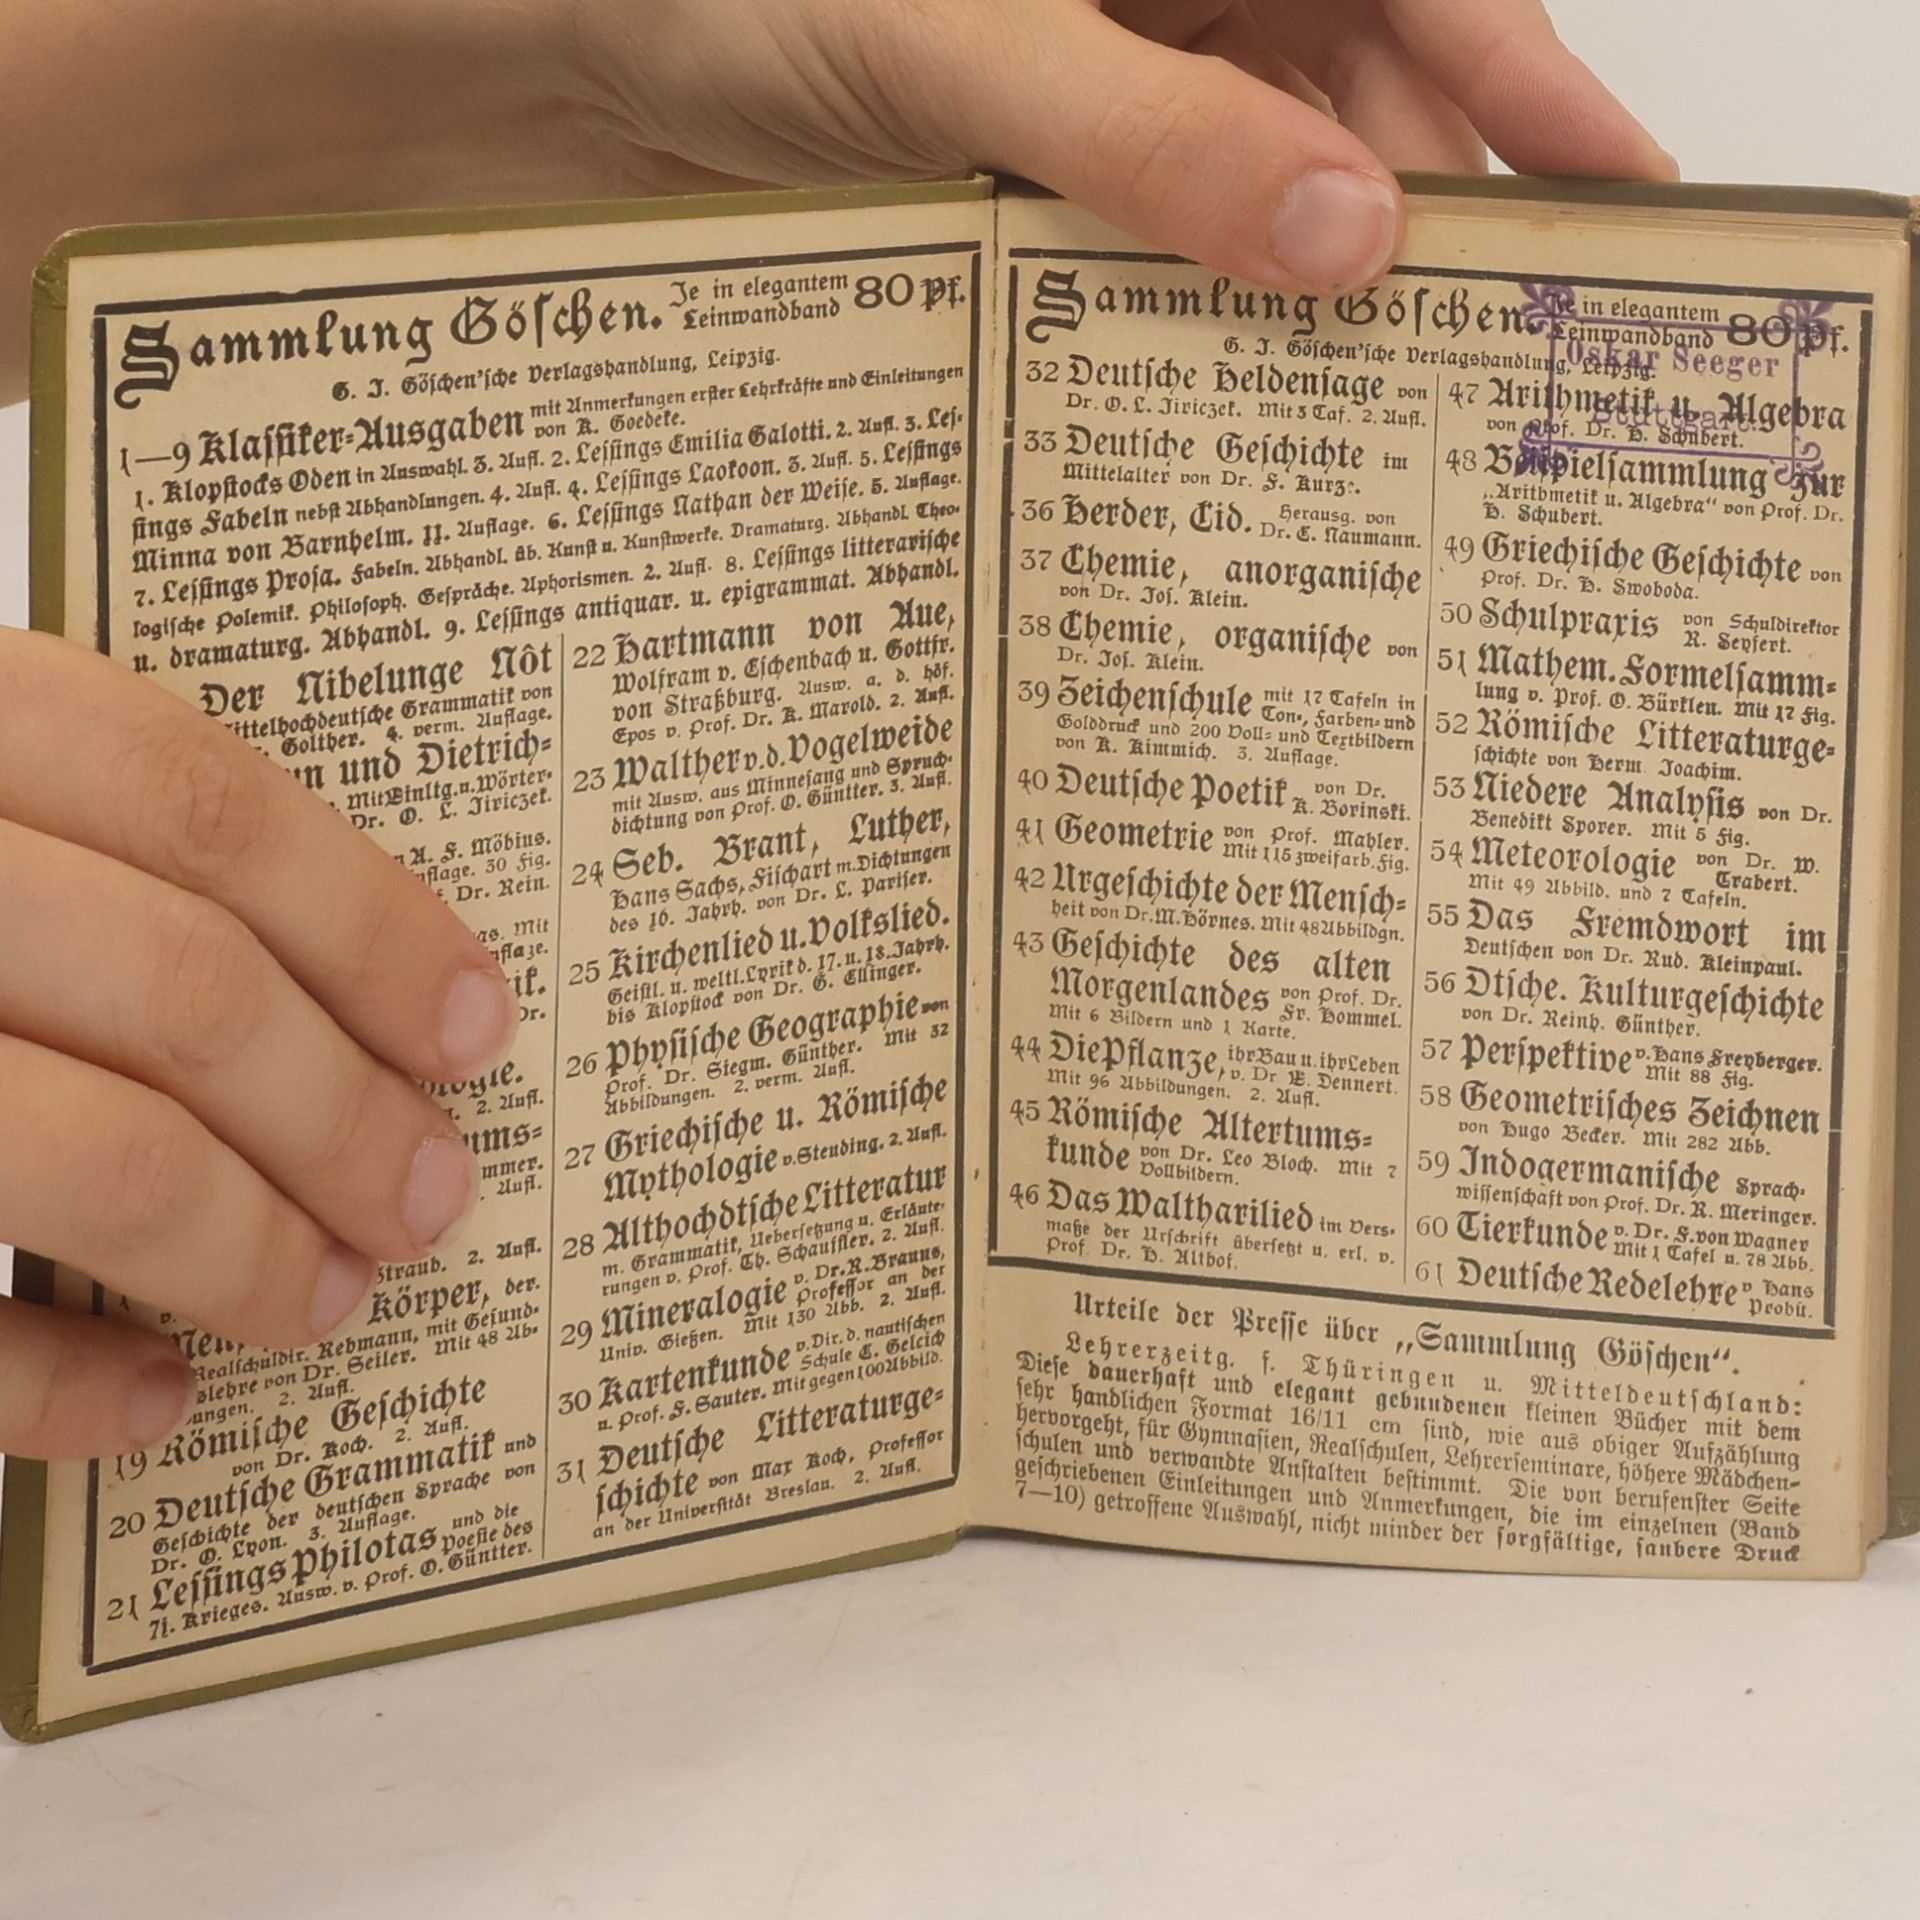 Sammlung Göschen. Je in elegantem Leinwandband 80 Pf.
G. J. Göschen'sche Verlagshandlung, Leipzig.
1—9 Klassiker-Ausgaben mit Anmerkungen erster Lehrkräfte und Einleitungen von K. Goedeke.
1. Klopstocks Oden in Auswahl. 3. Aufl. 2. Lessings Emilia Galotti. 2. Aufl. 3. Les-
sings Fabeln nebst Abhandlungen. 4. Aufl. 4. Lessings Laokoon. 3. Aufl. 5. Lessings
Minna von Barnhelm. 11. Auflage. 6. Lessings Nathan der Weise. 5. Auflage.
7. Lessings Prosa. Fabeln. Abhandl. üb. Kunst u. Kunstwerke. Dramaturg. Abhandl. Theo-
logische Polemik. Philosoph. Gespräche. Aphorismen. 2. Aufl. 8. Lessings litterarische
u. dramaturg. Abhandl. 9. Lessings antiquar. u. epigrammat. Abhandl.
Der Nibelunge Nôt
Mittelhochdeutsche Grammatik von
Golther. 4. verm. Auflage.
und Dietrich-
Mit Einltg. u. Wörter-
Dr. O. L. Jiriczek.
A. F. Möbius.
30 Fig.
Dr. Rein.
Mit
Dr.
2. Aufl.
Aufl.
Straub. 2. Aufl.
Körper, der.
Realschuldir. Rebmann, mit Gesund-
von Dr. Seiler. Mit 48 Ab-
2. Aufl.
19 Römische Geschichte
von Dr. Koch. 2. Aufl.
20 Deutsche Grammatik und
Geschichte der deutschen Sprache von
Dr. O. Lyon. 3. Auflage.
21 Lessings Philotas und die Poesie des
7j. Krieges. Ausw. v. Prof. O. Güntter.
22 Hartmann von Aue,
Wolfram v. Eschenbach u. Gottfr.
von Straßburg. Ausw. a. d. höf.
Epos v. Prof. Dr. K. Marold. 2. Aufl.
23 Walther v. d. Vogelweide
mit Ausw. aus Minnesang und Spruch-
dichtung von Prof. O. Güntter. 3. Aufl.
24 Seb. Brant, Luther,
Hans Sachs, Fischart m. Dichtungen
des 16. Jahrh. von Dr. L. Pariser.
25 Kirchenlied u. Volkslied.
Geistl. u. weltl. Lyrik d. 17. u. 18. Jahrh.
bis Klopstock von Dr. G. Ellinger.
26 Physische Geographie von
Prof. Dr. Siegm. Günther. Mit 32
Abbildungen. 2. verm. Aufl.
27 Griechische u. Römische
Mythologie v. Steuding. 2. Aufl.
28 Althochdtsche Litteratur
m. Grammatik, Uebersetzung u. Erläute-
rungen v. Prof. Th. Schauffler. 2. Aufl.
29 Mineralogie v. Dr. R. Brauns, Professor an der
Univ. Gießen. Mit 130 Abb. 2. Aufl.
30 Kartenkunde v. Dir. d. nautischen Schule E. Gelcich
u. Prof. F. Sauter. Mit gegen 100 Abbild.
31 Deutsche Litteraturge-
schichte von Max Koch, Professor
an der Universität Breslau. 2. Aufl.
Sammlung Göschen. Je in elegantem Leinwandband 80 Pf.
G. J. Göschen'sche Verlagshandlung, Leipzig.
Oskar Seeger
Stuttgart.
32 Deutsche Heldensage von
Dr. O. L. Jiriczek. Mit 3 Taf. 2. Aufl.
33 Deutsche Geschichte im
Mittelalter von Dr. F. Kurze.
36 Herder, Cid. Herausg. von Dr. E. Naumann.
37 Chemie, anorganische
von Dr. Jos. Klein.
38 Chemie, organische von
Dr. Jos. Klein.
39 Zeichenschule mit 17 Tafeln in Ton-, Farben- und
Golddruck und 200 Voll- und Textbildern
von K. Kimmich. 3. Auflage.
40 Deutsche Poetik von Dr. K. Borinski.
41 Geometrie von Prof. Mahler. Mit 115 zweifarb. Fig.
42 Urgeschichte der Mensch-
heit von Dr. M. Hörnes. Mit 48 Abbildgn.
43 Geschichte des alten
Morgenlandes von Prof. Dr. Fr. Hommel.
Mit 6 Bildern und 1 Karte.
44 Die Pflanze, ihr Bau u. ihr Leben v. Dr E. Dennert.
Mit 96 Abbildungen. 2. Aufl.
45 Römische Altertums-
kunde von Dr. Leo Bloch. Mit 7 Vollbildern.
46 Das Waltharilied im Vers-
maße der Urschrift übersetzt u. erl. v.
Prof. Dr. H. Althof.
47 Arithmetik u. Algebra
von Prof. Dr. H. Schubert.
48 Beispielsammlung zur
„Arithmetik u. Algebra“ von Prof. Dr.
H. Schubert.
49 Griechische Geschichte von
Prof. Dr. H. Swoboda.
50 Schulpraxis von Schuldirektor R. Seyfert.
51 Mathem. Formelsamm-
lung v. Prof. O. Bürklen. Mit 17 Fig.
52 Römische Litteraturge-
schichte von Herm Joachim.
53 Niedere Analysis von Dr.
Benedikt Sporer. Mit 5 Fig.
54 Meteorologie von Dr. W. Trabert.
Mit 49 Abbild. und 7 Tafeln.
55 Das Fremdwort im
Deutschen von Dr. Rud. Kleinpaul.
56 Dtsche. Kulturgeschichte
von Dr. Reinh. Günther.
57 Perspektive v. Hans Freyberger. Mit 88 Fig.
58 Geometrisches Zeichnen
von Hugo Becker. Mit 282 Abb.
59 Indogermanische Sprach-
wissenschaft von Prof. Dr. R. Meringer.
60 Tierkunde v. Dr. F. von Wagner Mit 1 Tafel u. 78 Abb.
61 Deutsche Redelehre v Hans Probst.
Urteile der Presse über „Sammlung Göschen“.
Lehrerzeitg. f. Thüringen u. Mitteldeutschland:
Diese dauerhaft und elegant gebundenen kleinen Bücher mit dem
sehr handlichen Format 16/11 cm sind, wie aus obiger Aufzählung
hervorgeht, für Gymnasien, Realschulen, Lehrerseminare, höhere Mädchen-
schulen und verwandte Anstalten bestimmt. Die von berufenster Seite
geschriebenen Einleitungen und Anmerkungen, die im einzelnen (Band
7—10) getroffene Auswahl, nicht minder der sorgfältige, saubere Druck